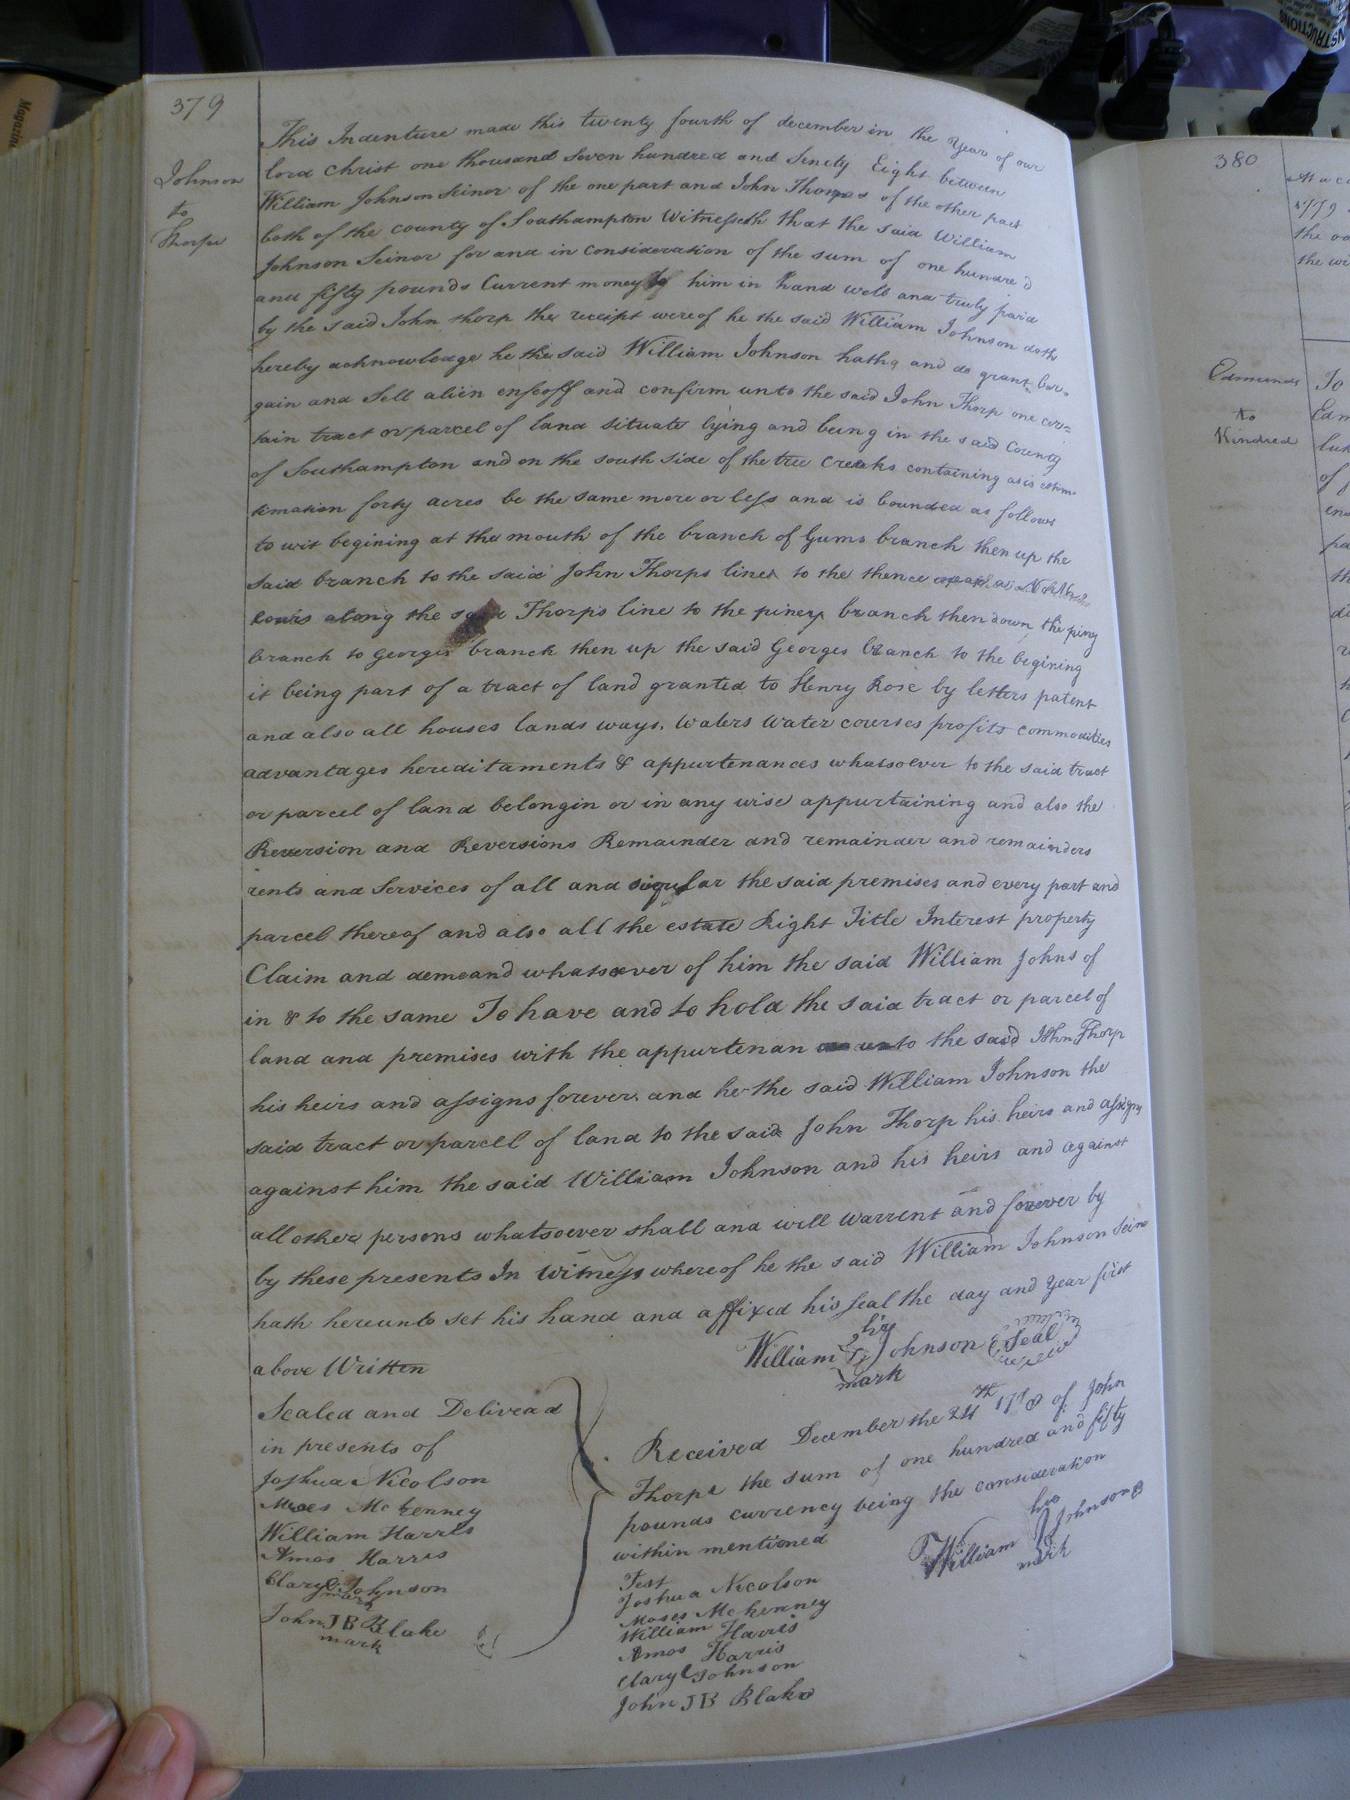 379
Johnson
to
Thorpe
This Indenture made this twenty fourth of december in the Year of our
lord Christ one thousand Seven hundred and Ninety Eight between
William Johnson Seinor of the one part and John Thorpes of the other part
both of the county of Southampton Witnesseth that the said William
Johnson Seinor for and in Consideration of the sum of one hundre'd
and fifty pounds Current money to him in hand well and truly paid
by the said John thorp the receipt wereof he the said William Johnson doth
hereby acknowledge he the said William Johnson hath and do grant bar-
gain and Sell alien enfeoff and confirm unto the said John Thorp one cer=
tain tract or parcel of land situate lying and being in the said County
of Southampton and on the south side of the tree Creeks containing as is estim
temation forty acres be the same more or less and is bounded as follows
to wit begining at the mouth of the branch of Gums branch then up the
said branch to the said John Thorps lines to the thence
along the said Thorps line to the piney branch then down the piny
branch to Georges branch then up the said Georges branch to the begining
it being part of a tract of land granted to Henry Rose by letters patent
and also all houses lands ways, waters water courses profits commodities
advantages hereditaments & appurtenances whatsoever to the said tract
or parcel of land belongin or in any wise appurtaining and also the
Reversion and Reversions Remainder and remainder and remainders
rents and Services of all and sigular the said premises and every part and
parcel thereof and also all the estate Right Title Interest property
Claim and demeand whatsoever of him the said William Johns of
in & to the same To have and to hold the said tract or parcel of
land and premises with the appurtenan unto the said John Thorp
his heirs and assigns forever. and he the said William Johnson the
said tract or parcel of land to the said John Thorp his heirs and assigns
against him the said William Johnson and his heirs and against
all other persons whatsoever shall and will warrent and forever by
by these presents In Witness whereof he the said William Johnson Sein
hath hereunto set his hand and affixed his seal the day and year first
above Written
his
William Johnson Seal
mark
Sealed and Delivead
in presents of
Joshua Nicolson
Moses Mc kenney
William Harris
Amos Harris
Clary C Johnson
mark
John JB Blake
mark
Received December the 24th 1798 of John
Thorpe the sum of one hundred and fifty
pounds currency being the consideration
within mentioned
his
William Johnson
mark
Test
Joshua Nicolson
Moses Mc kenney
William Harris
Amos Harris
Clary C Johnson
John JB Blake
380
Edmunds
to
Kindred